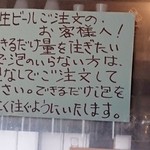 生ビールご注文の
お客様へ!
きるだけ量を注ぎたい
で泡のいらない方は、
なしでご注文して
さい。できるだけ泡を
く注ぐようにいたします。